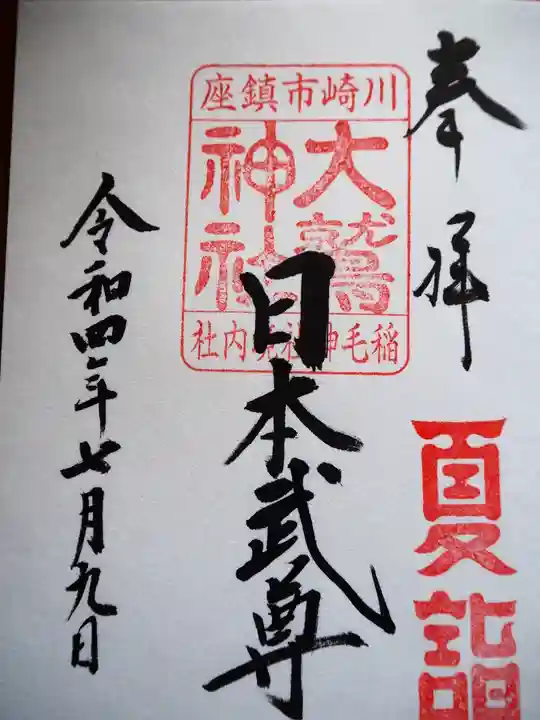 奉拝
夏詣
川崎市鎮座
大鷲
神社
稲毛神社境内社
日本武尊
令和四年七月九日